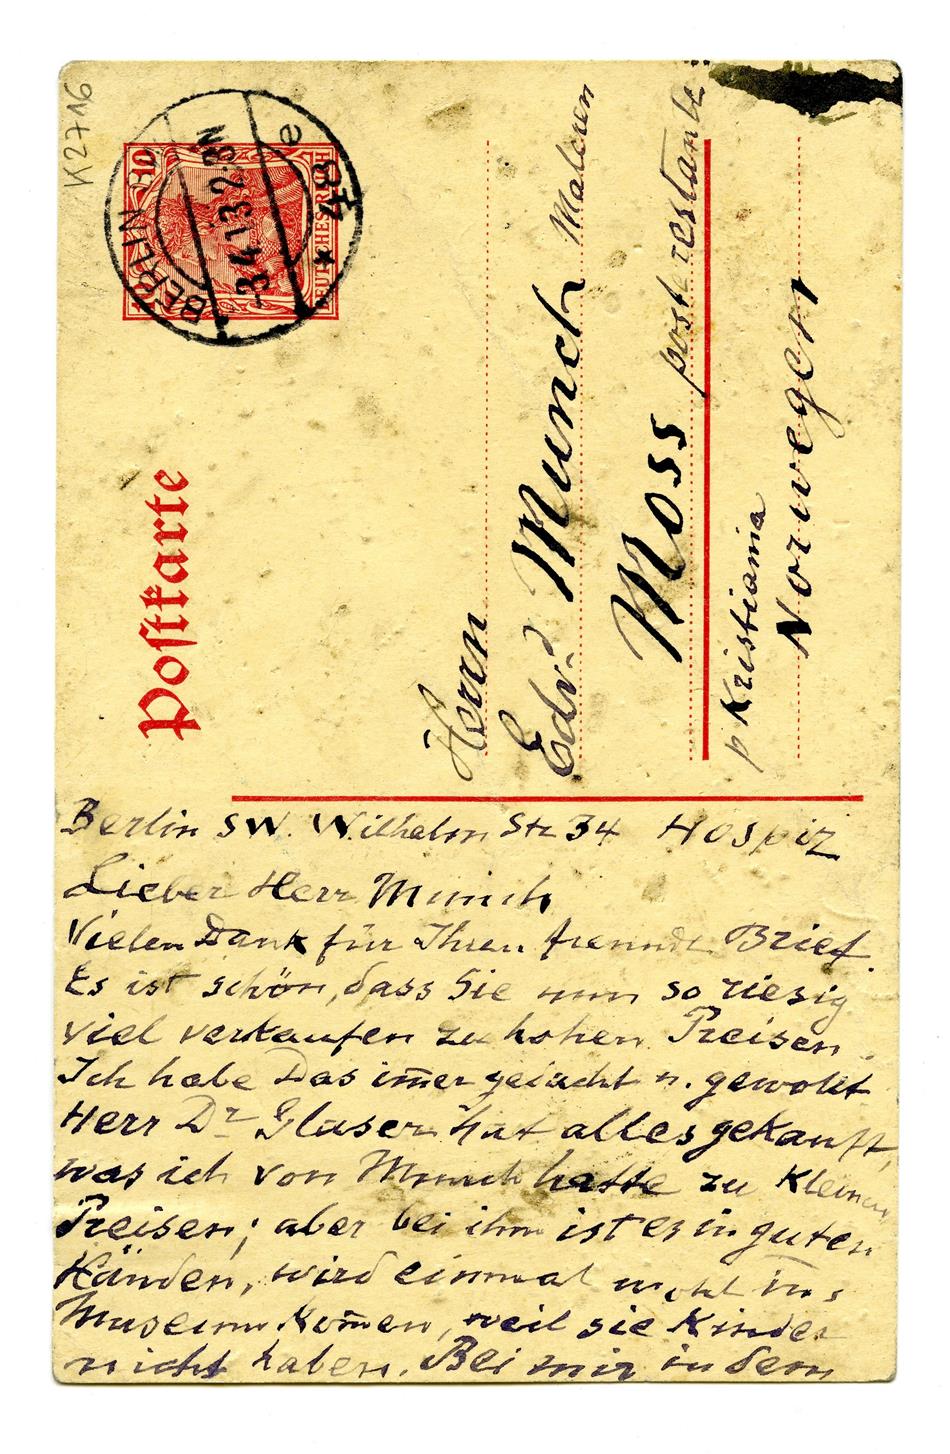 K2716
DEUTSCHES REICH
10 10
BERLIN
-3.4.13.2-3N
e
* 48
Postkarte
Herrn
Edv. Munch Maleren
Moss postrestante
p Kristiania
Norwegen
Berlin SW. Wilhelm Str 34 Hospiz
Lieber Herr Munch
Vielen Dank für Ihren freundl Brief.
Es ist schön, dass Sie nun so riesig
viel verkaufen zu hohen Preisen.
Ich habe Das im̅er gedacht u. gewollt
Herr Dr Glaser hat alles gekauft,
was ich von Munch hatte zu Kleinen
Preisen; aber bei ihm ist es in guten
Händen, wird einmal wohl ins
Museum kom̅en, weil sie Kinder
nicht haben. Bei mir in dem